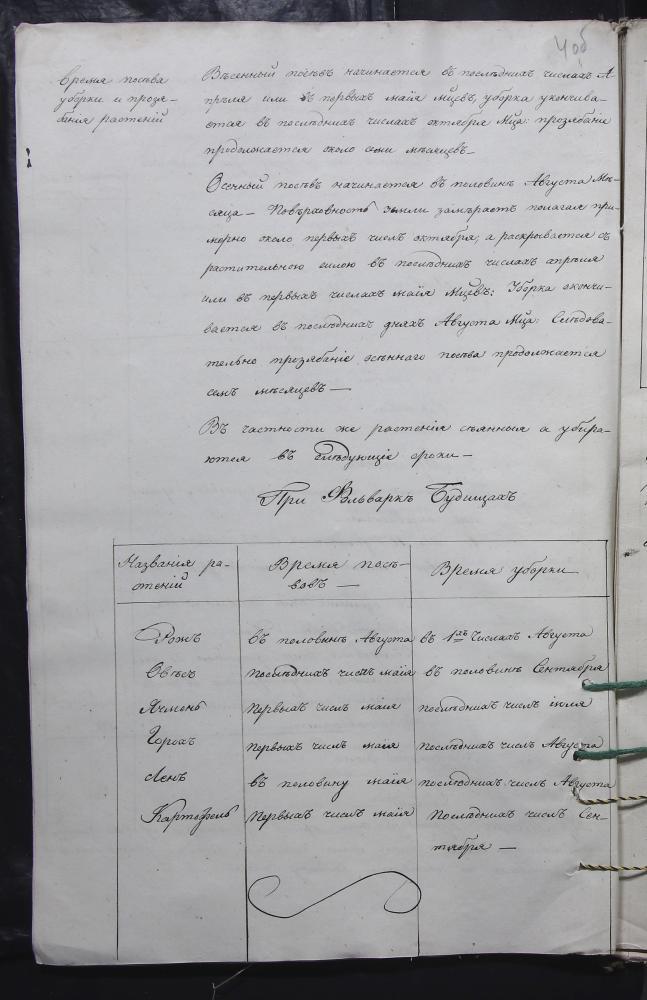 4 об
Время посѣва
уборки и прозя-
бнія растеній
Вѣсенный посѣвъ начинается въ послѣднихъ числахъ А
прѣля или въ первыхъ маія Мцевъ, уборка укончива-
ется въ послѣднихъ числахъ октября Мца: прозябаніе
продолжается около семи мѣсяцевъ.—
Осенный посѣвъ начинается въ половинѣ Августа Мѣ-
сяца — Поверхность земли замѣраетъ полагая при-
мерно около первыхъ числъ октября, а раскрывается съ
растительною силою въ послѣднихъ числахъ апрѣля
или въ первыхъ числахъ маія Мцевъ: Уборка окончи-
вается въ послѣднихъ дняхъ Августа Мца: Слѣдова-
тельно прозябаніе осѣннаго посѣва продолжается
семь мѣсяцевъ —
Въ частности же растенія сѣянныя а убира-
ются въ слѣдующіе сроки —
При Фольваркѣ Будищахъ
Названія ра-
стеній
Время посѣ-
вовъ —
Время уборки
Рожъ въ половинѣ Августа въ 1хъ числахъ Августа
Овѣсъ послѣднихъ числъ маія въ половинѣ Сентября
Ячмень Первыхъ числъ маія послѣднихъ числъ іюля
Горохъ первыхъ числъ маія послѣднихъ числъ Августа
Ленъ въ половину маія послѣднихъ числъ Августа
Картофель Первыхъ числъ маія Послѣднихъ числъ Сен-
тября —